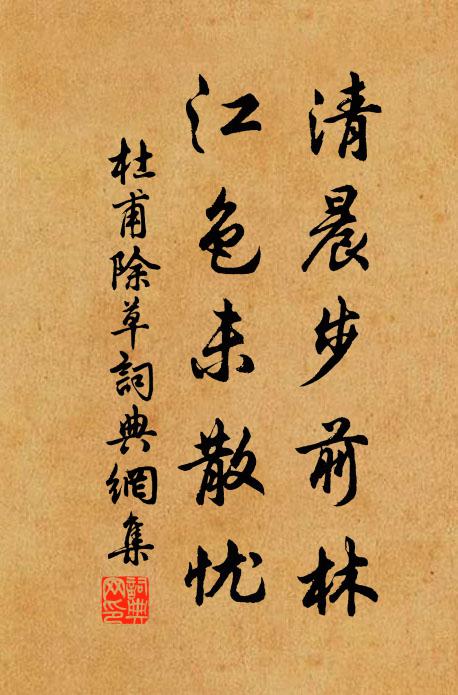 清晨步前林
江色未散忧
杜甫除草詞典網集
詞典網印